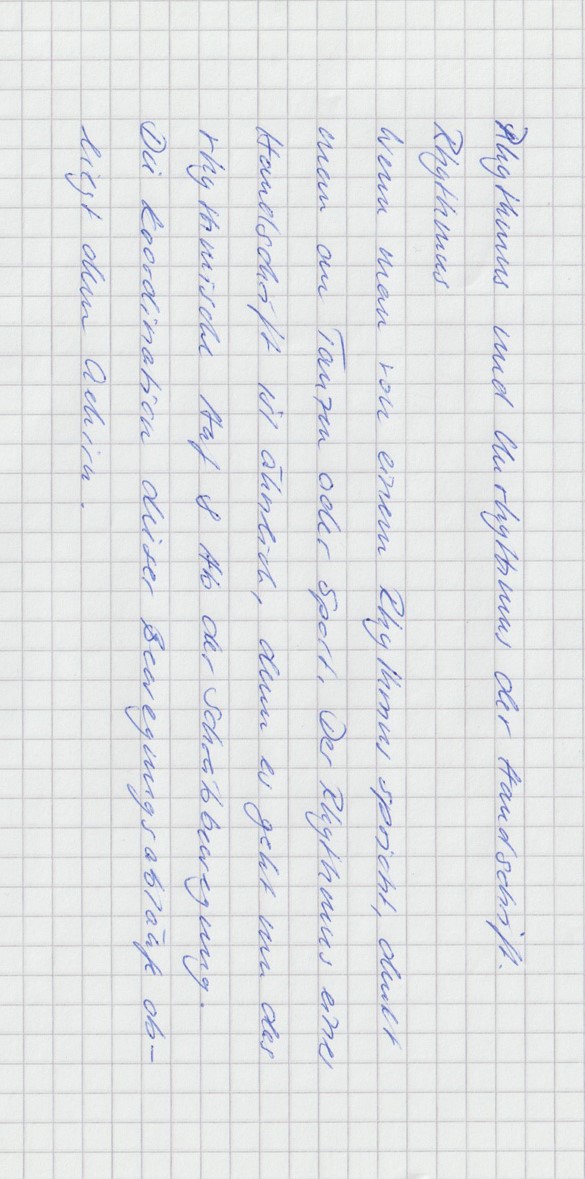 Rhythmus und Unrhythmus der Handschrift.
Rhythmus
Wenn man von einem Rhythmus spricht, denkt
man an Tanzen oder Sport. Der Rhythmus einer
Handschrift ist ähnlich, denn es geht um das
rhythmische Auf & Ab der Schreibbewegung.
Die Koordination dieser Bewegungsabläufe ob-
liegt dem Gehirn.